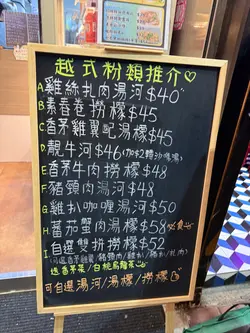 越式粉類推介♡
A 雞絲扎肉湯河$40
B. 素春卷撈檬$45
C. 香茅雞翼配湯檬$45
D. 靚牛河$46(加$2轉沙嗲湯)
E. 香茅牛肉撈檬$48
F. 豬頸肉湯河$48
G. 雞扒咖喱湯河$50
H. 蕃茄蟹肉湯檬$58
自選雙拼撈檬$52
送香茅茶/白桃烏龍茶
可自選湯河/湯檬/撈檬